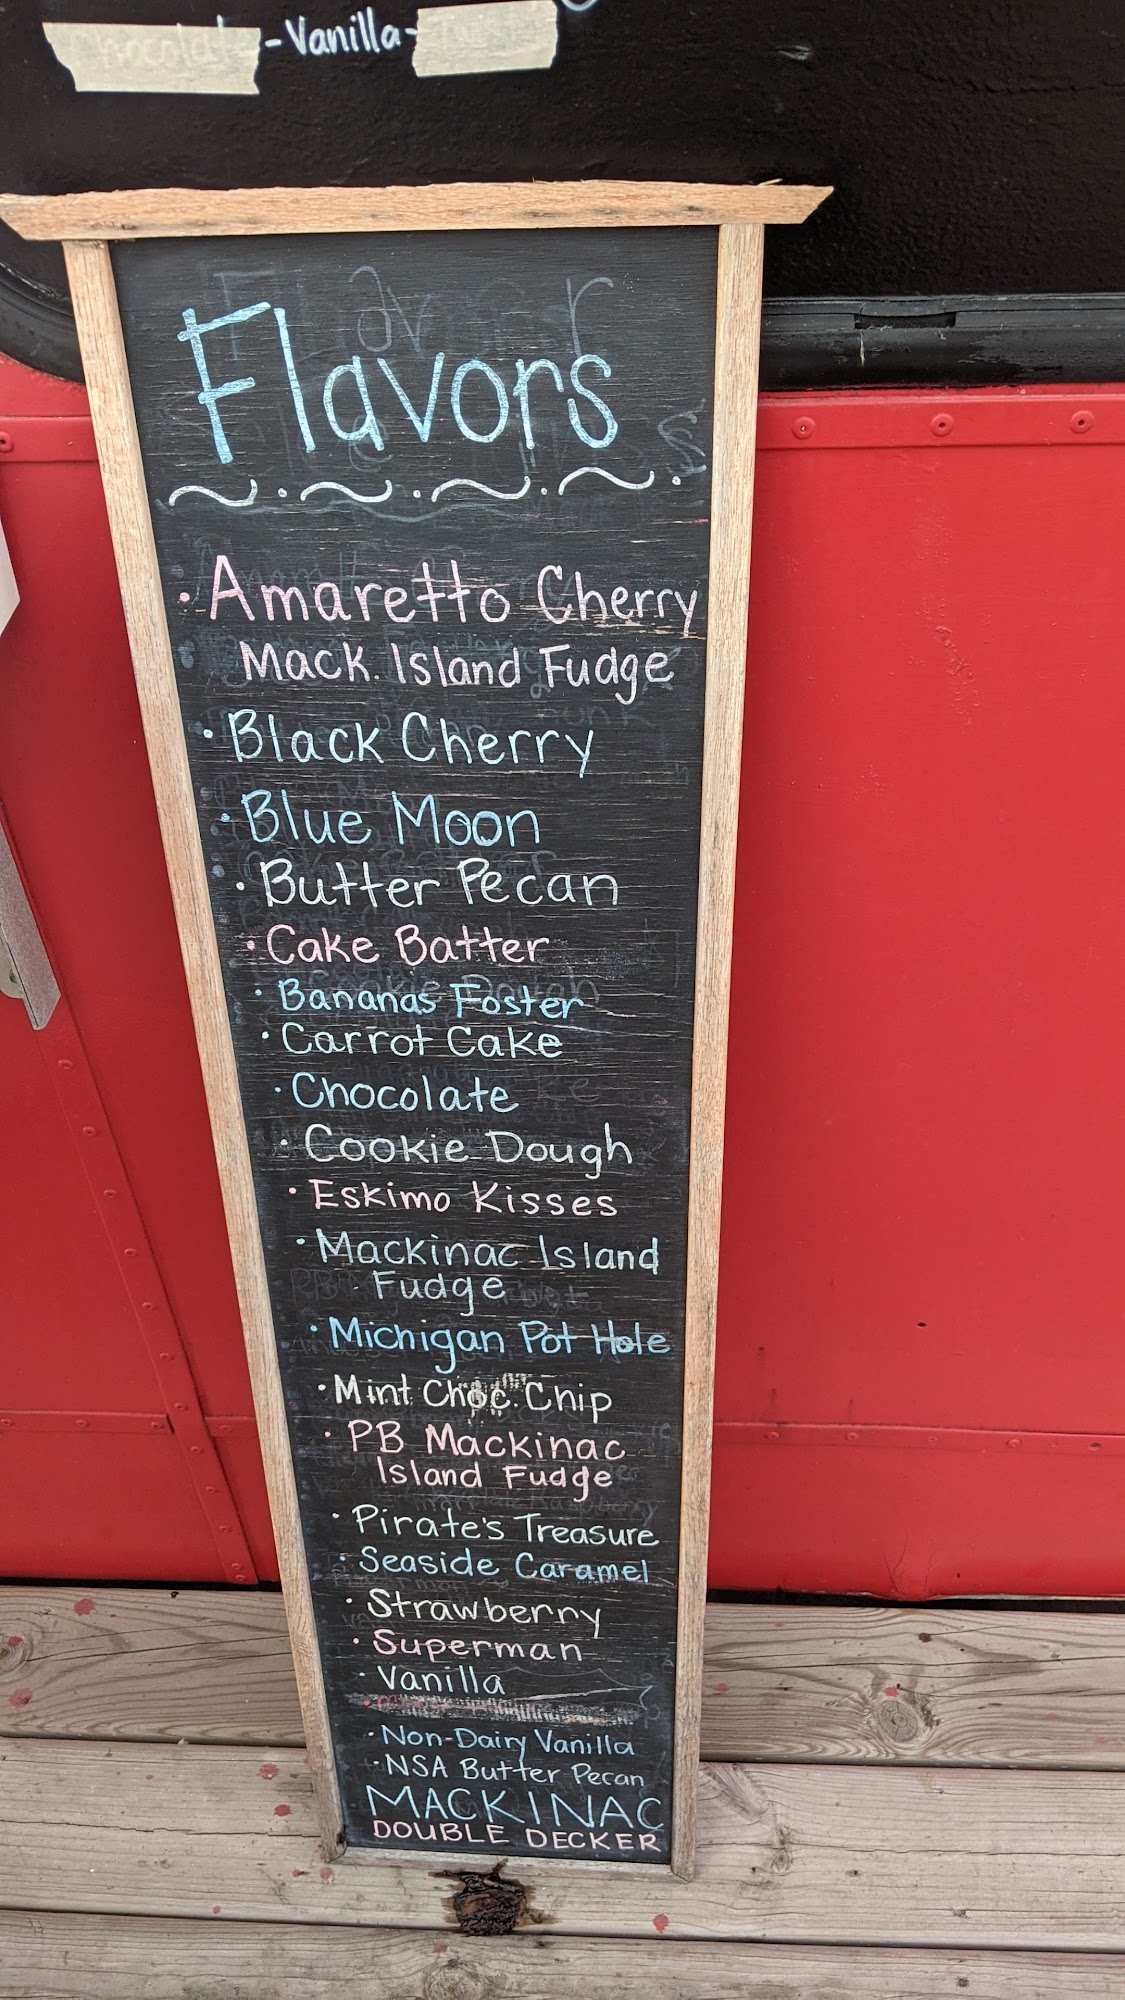 -Vanilla-
Flavors
· Amaretto Cherry
Mack. Island Fudge
· Black Cherry
· Blue Moon
· Butter Pecan
· Cake Batter
· Bananas Foster
· Carrot Cake
· Chocolate
· Cookie Dough
· Eskimo Kisses
· Mackinac Island
Fudge
· Michigan Pot Hole
· Mint Choc. Chip
· PB Mackinac
Island Fudge
· Pirate's Treasure
· Seaside Caramel
· Strawberry
· Superman
· Vanilla
· Non-Dairy Vanilla
· NSA Butter Pecan
MACKINAC
DOUBLE DECKER